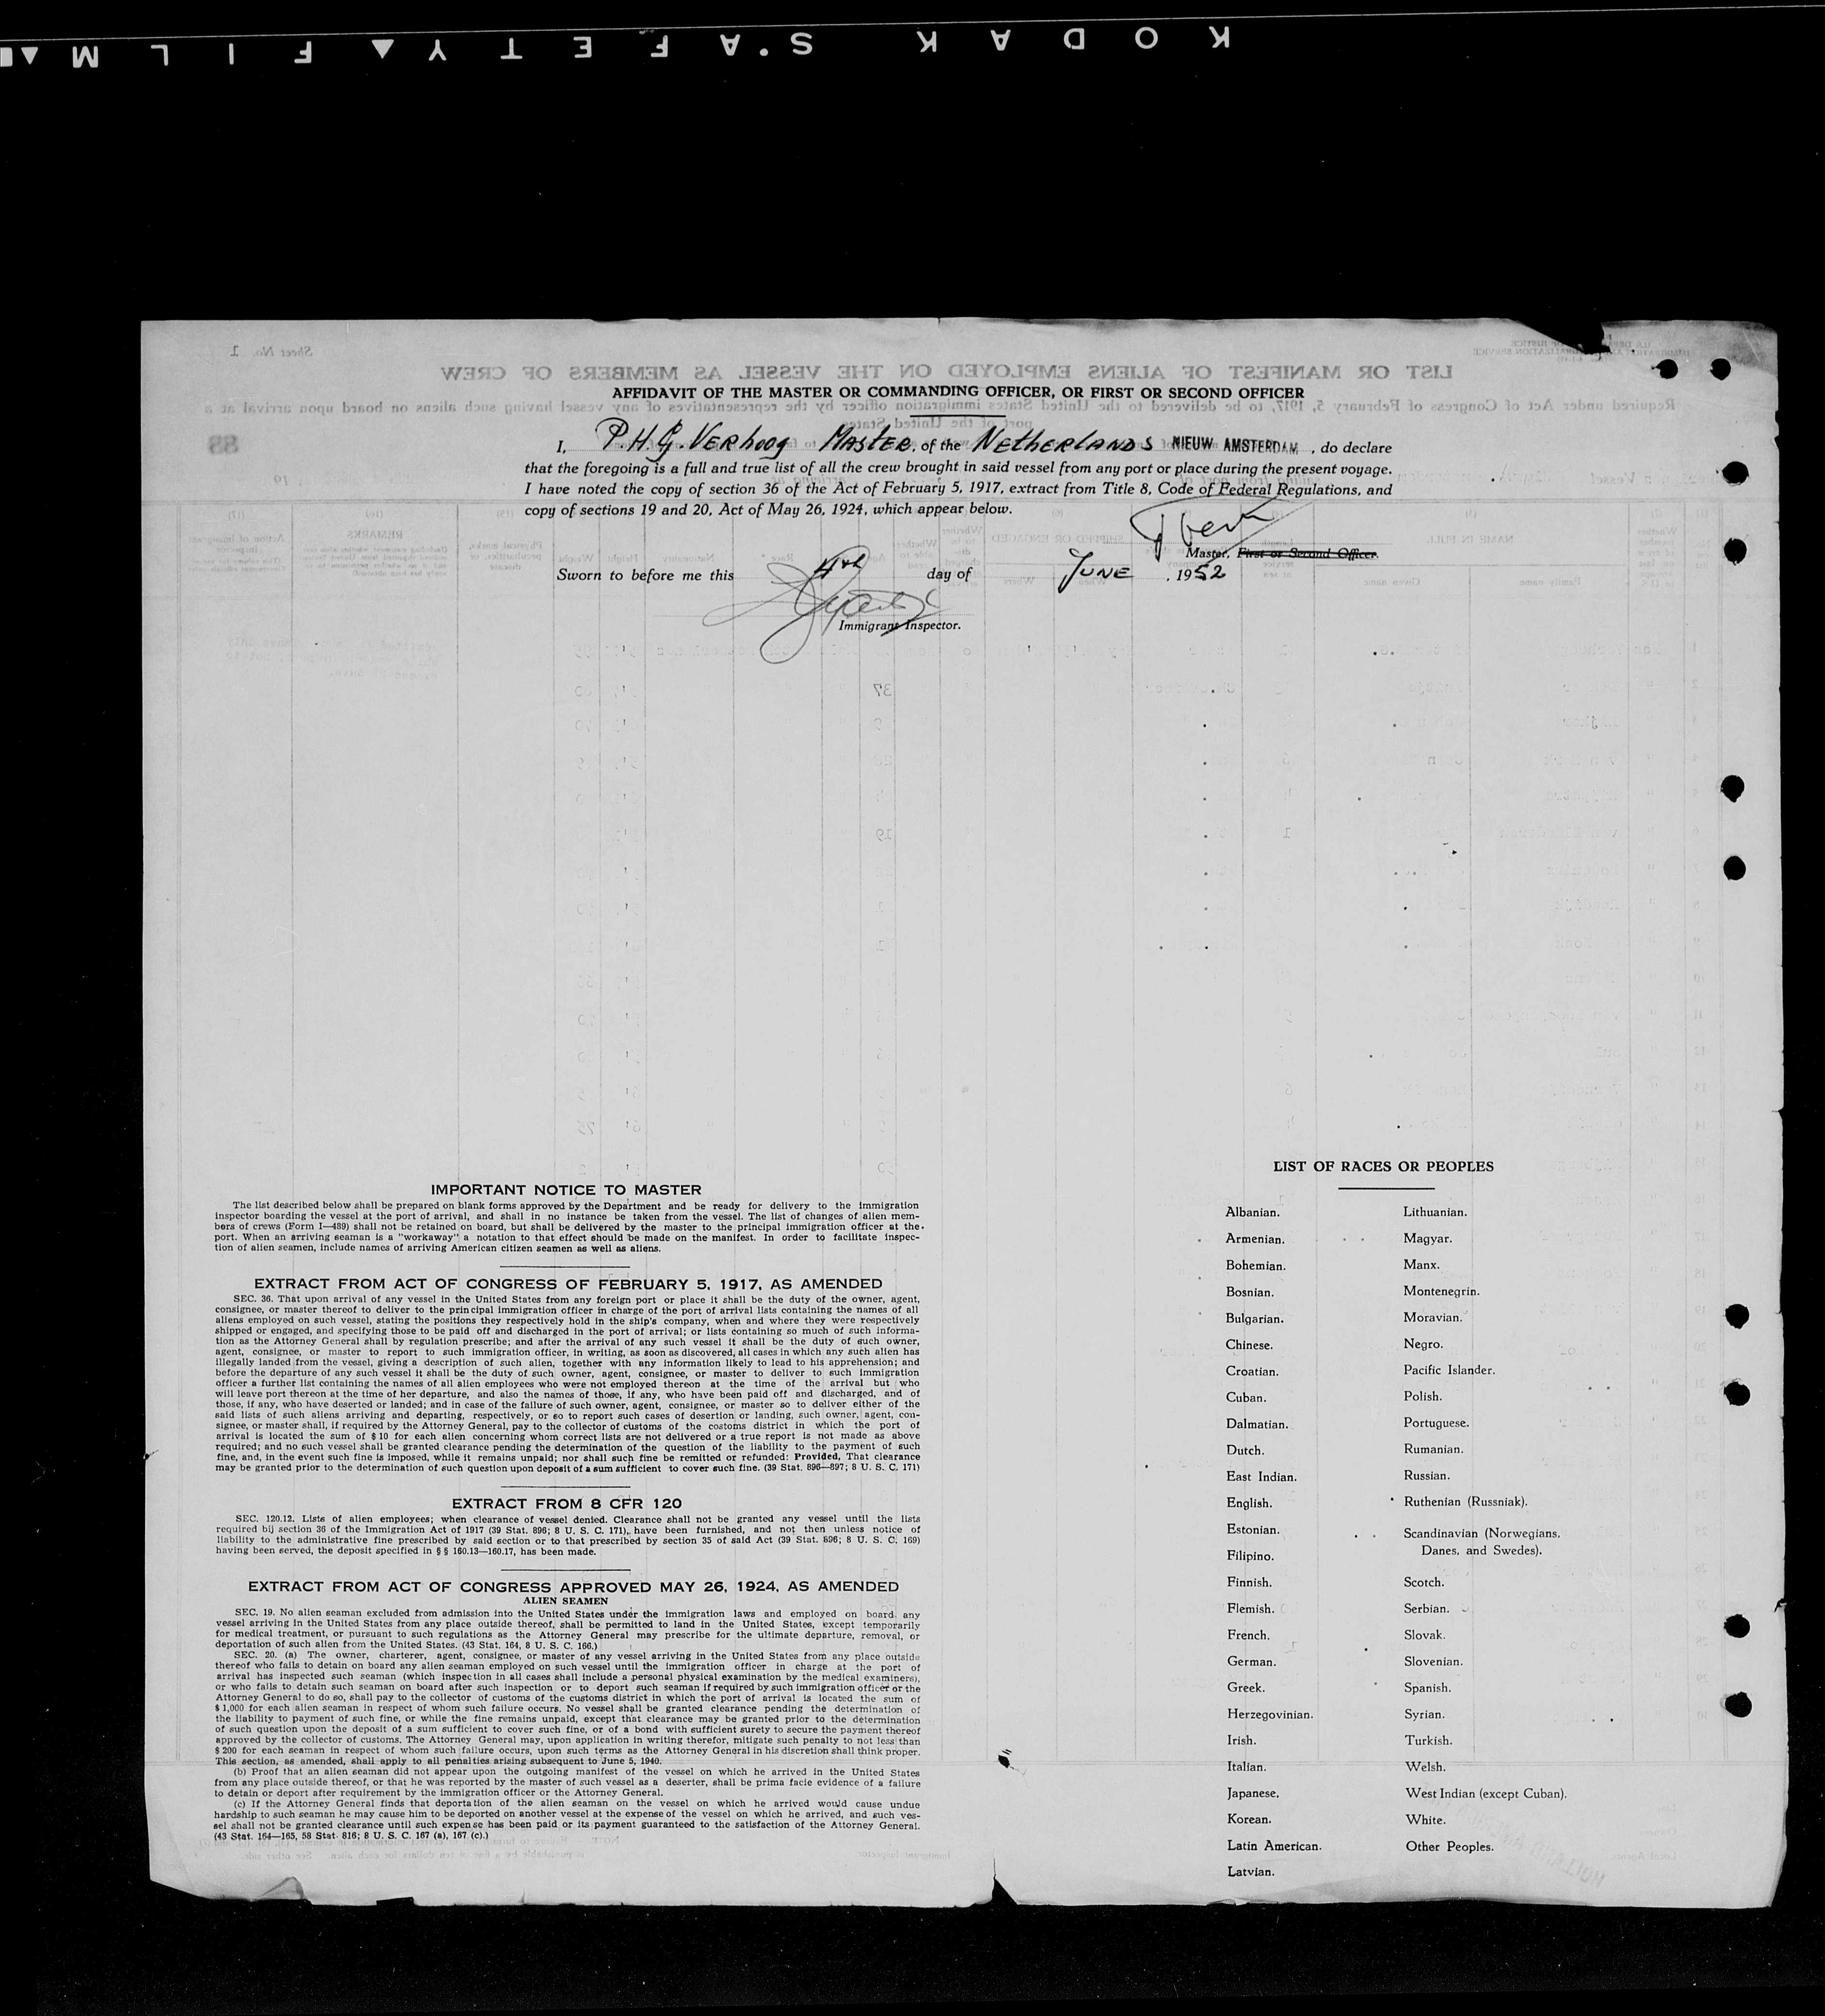 KODAK S.AFETY FILM
AFFIDAVIT OF THE MASTER OR COMMANDING OFFICER, OR FIRST OR SECOND OFFICER
I, P.H.G. VERHOOG MASTER, of the NETHERLANDS NIEUW AMSTERDAM , do declare
that the foregoing is a full and true list of all the crew brought in said vessel from any port or place during the present voyage.
I have noted the copy of section 36 of the Act of February 5, 1917, extract from Title 8, Code of Federal Regulations, and
copy of sections 19 and 20, Act of May 26, 1924, which appear below.
Master, First or Second Officer.
Sworn to before me this 4th day of JUNE , 1952
Immigrant Inspector.
IMPORTANT NOTICE TO MASTER
The list described below shall be prepared on blank forms approved by the Department and be ready for delivery to the immigration
inspector boarding the vessel at the port of arrival, and shall in no instance be taken from the vessel. The list of changes of alien mem-
bers of crews (Form I—489) shall not be retained on board, but shall be delivered by the master to the principal immigration officer at the
port. When an arriving seaman is a "workaway" a notation to that effect should be made on the manifest. In order to facilitate inspec-
tion of alien seamen, include names of arriving American citizen seamen as well as aliens.
EXTRACT FROM ACT OF CONGRESS OF FEBRUARY 5, 1917, AS AMENDED
SEC. 36. That upon arrival of any vessel in the United States from any foreign port or place it shall be the duty of the owner, agent,
consignee, or master thereof to deliver to the principal immigration officer in charge of the port of arrival lists containing the names of all
aliens employed on such vessel, stating the positions they respectively hold in the ship's company, when and where they were respectively
shipped or engaged, and specifying those to be paid off and discharged in the port of arrival; or lists containing so much of such informa-
tion as the Attorney General shall by regulation prescribe; and after the arrival of any such vessel it shall be the duty of such owner,
agent, consignee, or master to report to such immigration officer, in writing, as soon as discovered, all cases in which any such alien has
illegally landed from the vessel, giving a description of such alien, together with any information likely to lead to his apprehension; and
before the departure of any such vessel it shall be the duty of such owner, agent, consignee, or master to deliver to such immigration
officer a further list containing the names of all alien employees who were not employed thereon at the time of the arrival but who
will leave port thereon at the time of her departure, and also the names of those, if any, who have been paid off and discharged, and of
those, if any, who have deserted or landed; and in case of the failure of such owner, agent, consignee, or master so to deliver either of the
said lists of such aliens arriving and departing, respectively, or so to report such cases of desertion or landing, such owner, agent, con-
signee, or master shall, if required by the Attorney General, pay to the collector of customs of the costoms district in which the port of
arrival is located the sum of $10 for each alien concerning whom correct lists are not delivered or a true report is not made as above
required; and no such vessel shall be granted clearance pending the determination of the question of the liability to the payment of such
fine, and, in the event such fine is imposed, while it remains unpaid; nor shall such fine be remitted or refunded: Provided, That clearance
may be granted prior to the determination of such question upon deposit of a sum sufficient to cover such fine. (39 Stat. 896—897; 8 U. S. C. 171)
EXTRACT FROM 8 CFR 120
SEC. 120.12. Lists of alien employees; when clearance of vessel denied. Clearance shall not be granted any vessel until the lists
required bij section 36 of the Immigration Act of 1917 (39 Stat. 896; 8 U. S. C. 171), have been furnished, and not then unless notice of
liability to the administrative fine prescribed by said section or to that prescribed by section 35 of said Act (39 Stat. 896; 8 U. S. C. 169)
having been served, the deposit specified in § § 160.13—160.17, has been made.
EXTRACT FROM ACT OF CONGRESS APPROVED MAY 26, 1924, AS AMENDED
ALIEN SEAMEN
SEC. 19. No alien seaman excluded from admission into the United States under the immigration laws and employed on board any
vessel arriving in the United States from any place outside thereof, shall be permitted to land in the United States, except temporarily
for medical treatment, or pursuant to such regulations as the Attorney General may prescribe for the ultimate departure, removal, or
deportation of such alien from the United States. (43 Stat. 164, 8 U. S. C. 166.)
SEC. 20. (a) The owner, charterer, agent, consignee, or master of any vessel arriving in the United States from any place outside
thereof who fails to detain on board any alien seaman employed on such vessel until the immigration officer in charge at the port of
arrival has inspected such seaman (which inspection in all cases shall include a personal physical examination by the medical examiners),
or who fails to detain such seaman on board after such inspection or to deport such seaman if required by such immigration officer or the
Attorney General to do so, shall pay to the collector of customs of the customs district in which the port of arrival is located the sum of
$1,000 for each alien seaman in respect of whom such failure occurs. No vessel shall be granted clearance pending the determination of
the liability to payment of such fine, or while the fine remains unpaid, except that clearance may be granted prior to the determination
of such question upon the deposit of a sum sufficient to cover such fine, or of a bond with sufficient surety to secure the payment thereof
approved by the collector of customs. The Attorney General may, upon application in writing therefor, mitigate such penalty to not less than
$200 for each seaman in respect of whom such failure occurs, upon such terms as the Attorney General in his discretion shall think proper.
This section, as amended, shall apply to all penalties arising subsequent to June 5, 1940.
(b) Proof that an alien seaman did not appear upon the outgoing manifest of the vessel on which he arrived in the United States
from any place outside thereof, or that he was reported by the master of such vessel as a deserter, shall be prima facie evidence of a failure
to detain or deport after requirement by the immigration officer or the Attorney General.
(c) If the Attorney General finds that deportation of the alien seaman on the vessel on which he arrived would cause undue
hardship to such seaman he may cause him to be deported on another vessel at the expense of the vessel on which he arrived, and such ves-
sel shall not be granted clearance until such expense has been paid or its payment guaranteed to the satisfaction of the Attorney General.
(43 Stat. 164—165, 58 Stat. 816; 8 U. S. C. 167 (a), 167 (c).)
LIST OF RACES OR PEOPLES
Albanian.
Armenian.
Bohemian.
Bosnian.
Bulgarian.
Chinese.
Croatian.
Cuban.
Dalmatian.
Dutch.
East Indian.
English.
Estonian.
Filipino.
Finnish.
Flemish.
French.
German.
Greek.
Herzegovinian.
Irish.
Italian.
Japanese.
Korean.
Latin American.
Latvian.
Lithuanian.
Magyar.
Manx.
Montenegrin.
Moravian.
Negro.
Pacific Islander.
Polish.
Portuguese.
Rumanian.
Russian.
Ruthenian (Russniak).
Scandinavian (Norwegians,
Danes, and Swedes).
Scotch.
Serbian.
Slovak.
Slovenian.
Spanish.
Syrian.
Turkish.
Welsh.
West Indian (except Cuban).
White.
Other Peoples.